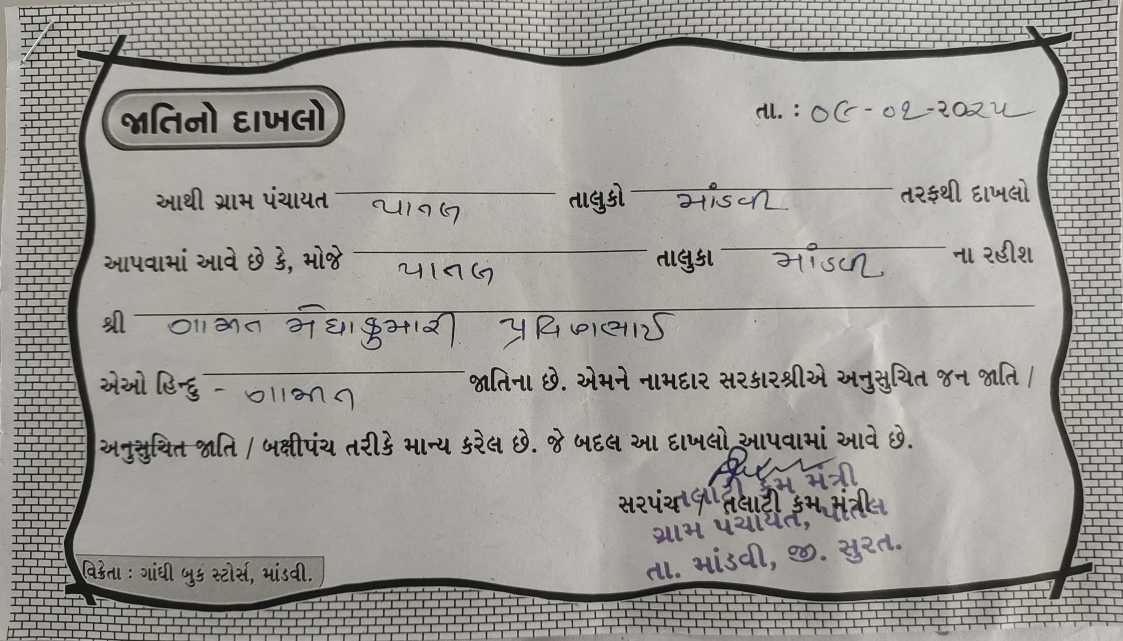 જાતિનો દાખલો
તા. : ૦૯-૦૧-૨૦૨૫
આથી ગ્રામ પંચાયત પાતલ તાલુકો માંડવી તરફથી દાખલો
આપવામાં આવે છે કે, મોજે પાતલ તાલુકા માંડવી ના રહીશ
શ્રી ગામીત મેઘાકુમારી પ્રવિણભાઈ
એઓ હિન્દુ - ગામીત જાતિના છે. એમને નામદાર સરકારશ્રીએ અનુસુચિત જન જાતિ /
અનુસુચિત જાતિ / બક્ષીપંચ તરીકે માન્ય કરેલ છે. જે બદલ આ દાખલો આપવામાં આવે છે.
સરપંચ / તલાટી કમ મંત્રી
તલાટી કમ મંત્રી
ગ્રામ પંચાયત, પાતલ
તા. માંડવી, જી. સુરત.
વિક્રેતા : ગાંધી બુક સ્ટોર્સ, માંડવી.